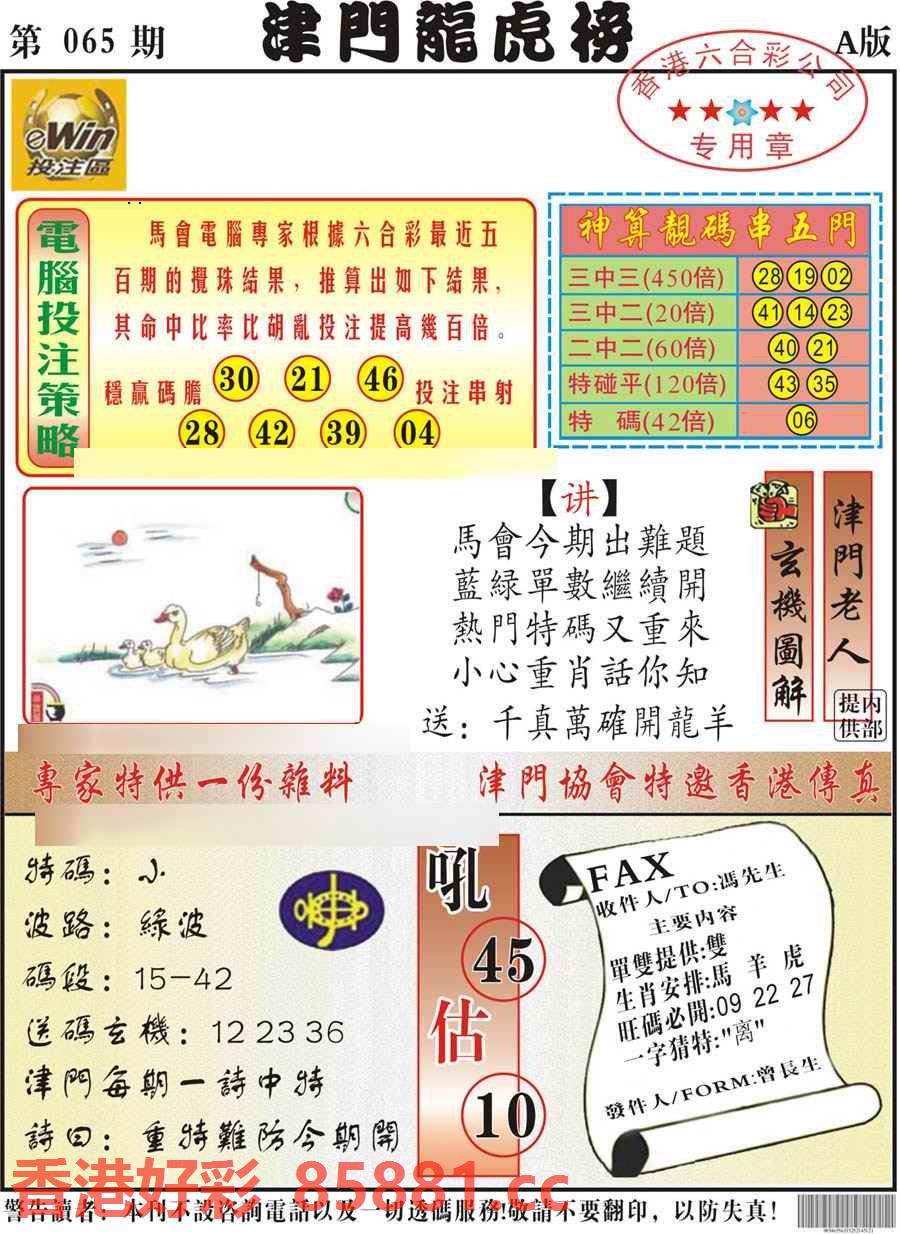 第 065 期
津門龍虎榜
A版
香港六合彩公司
专用章
eWin
投注區
電腦投注策略
馬會電腦專家根據六合彩最近五
百期的攪珠結果，推算出如下結果，
其命中比率比胡亂投注提高幾百倍。
穩贏碼膽 30 21 46 投注串射
28 42 39 04
神算靚碼串五門
三中三(450倍) 28 19 02
三中二(20倍) 41 14 23
二中二(60倍) 40 21
特碰平(120倍) 43 35
特 碼(42倍) 06
【讲】
馬會今期出難題
藍綠單數繼續開
熱門特碼又重來
小心重肖話你知
送：千真萬確開龍羊
玄機圖解
津門老人
内部提供
專家特供一份雜料
津門協會特邀香港傳真
特碼：小
波路：綠波
碼段：15-42
送碼玄機：12 23 36
津門每期一詩中特
詩曰：重特難防今期開
吼
45
估
10
FAX
收件人/TO:馮先生
主要内容
單雙提供:雙
生肖安排:馬 羊 虎
旺碼必開:09 22 27
一字猜特:"离"
發件人/FORM:曾長生
香港好彩 85881.cc
警告讀者：本刊不設咨詢電話以及一切透碼服務!敬請不要翻印，以防失真!